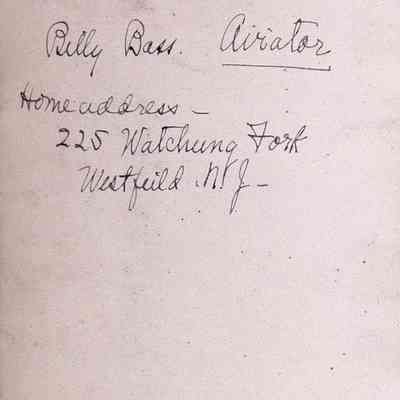 Billy Bass. Aviator
Home address –
225 Watchung Fork
Westfeild. N.J –